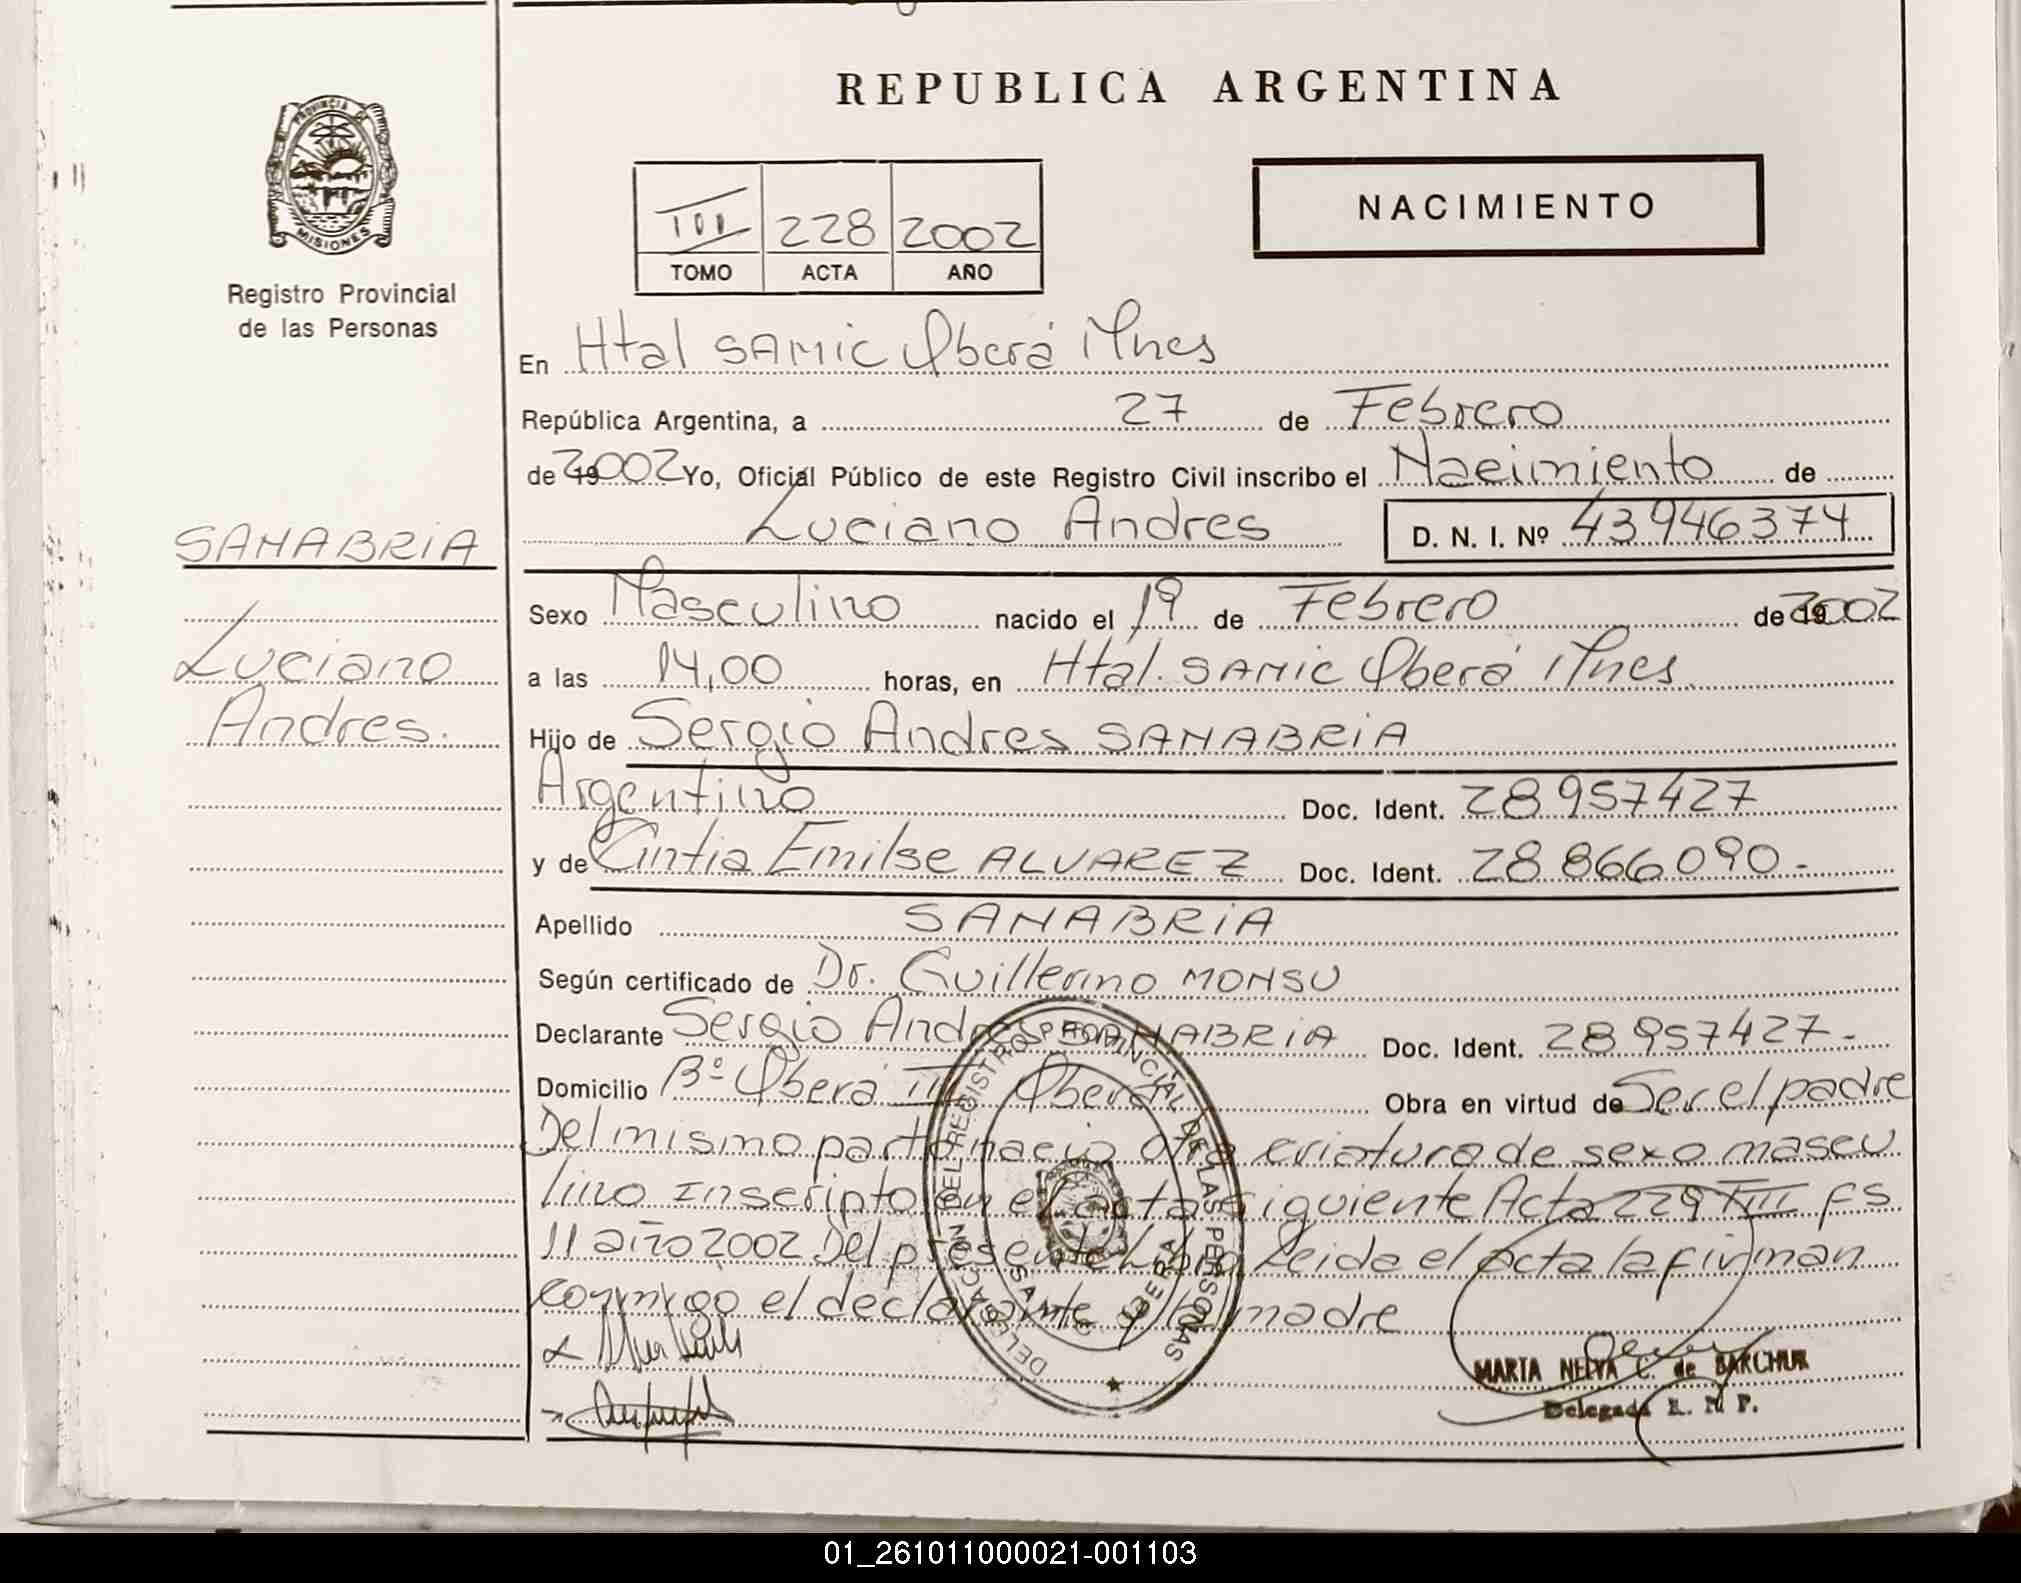 REPUBLICA ARGENTINA
PROVINCIA DE
MISIONES
Registro Provincial
de las Personas
NACIMIENTO
III 228 2002
TOMO ACTA AÑO
En Htal SAMIC Oberá Mnes
República Argentina, a 27 de Febrero
de 2002 Yo, Oficial Público de este Registro Civil inscribo el Nacimiento de
Luciano Andres D. N. I. Nº 43946374
SANABRIA
Luciano
Andres.
Sexo Masculino nacido el 19 de Febrero de 2002
a las 14,00 horas, en Htal. SAMIC Oberá Mnes
Hijo de Sergio Andres SANABRIA
Argentino Doc. Ident. 28957427
y de Cintia Emilse ALVAREZ Doc. Ident. 28866090-
Apellido SANABRIA
Según certificado de Dr. Guillermo MONSU
Declarante Sergio Andres SANABRIA Doc. Ident. 28957427-
Domicilio Bº Oberá III Oberá Obra en virtud de Ser el padre
Del mismo parto nacio otra criatura de sexo mascu
lino Inscripto en el acta siguiente Acta 229 TIII fs
11 año 2002 Del presente Libro Leida el acta la firman
conmigo el declarante y la madre
DELEGACION DEL REGISTRO PROVINCIAL DE LAS PERSONAS
OBERA
MARTA NELVA C. de BARCHUR
Delegada R. P.
01_261011000021-001103